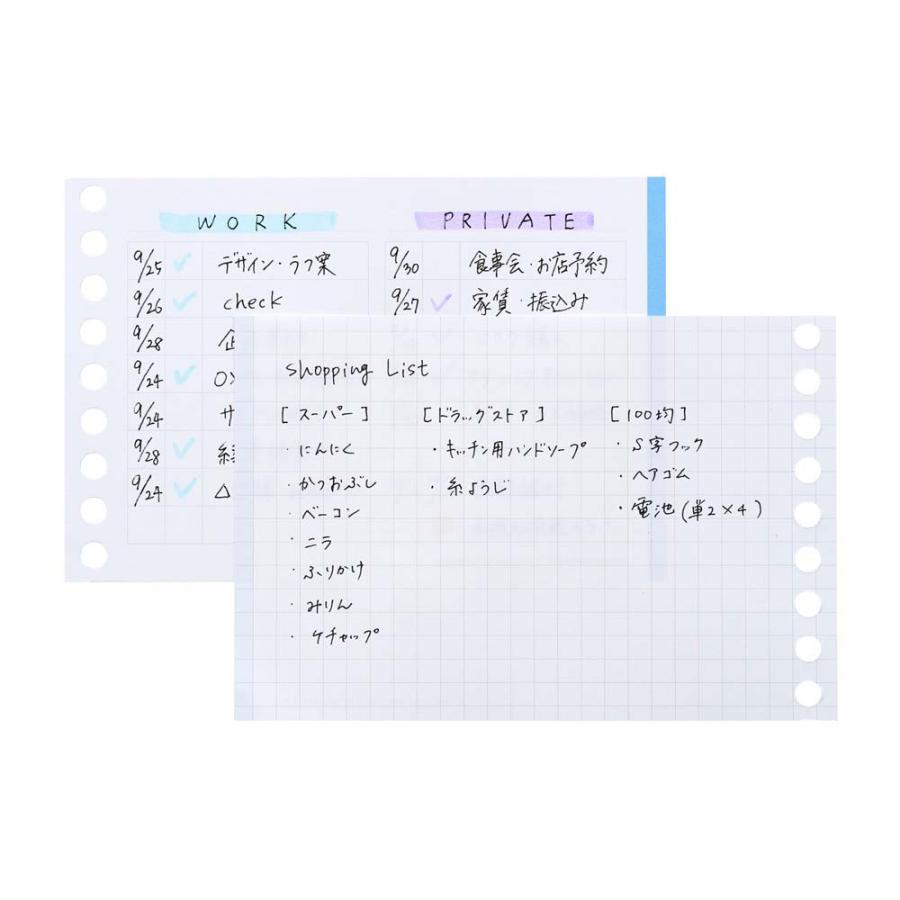 WORK
9/25 デザイン・ラフ案
9/26 check
9/28 企
9/24
9/24 サ
9/28
9/24 △
PRIVATE
9/30 食事会・お店予約
9/27 家賃・振込み
Shopping List
[スーパー]
・にんにく
・かつおぶし
・ベーコン
・ニラ
・ふりかけ
・みりん
・ケチャップ
[ドラッグストア]
・キッチン用ハンドソープ
・糸ようじ
[100均]
・S字フック
・ヘアゴム
・電池(単2×4)